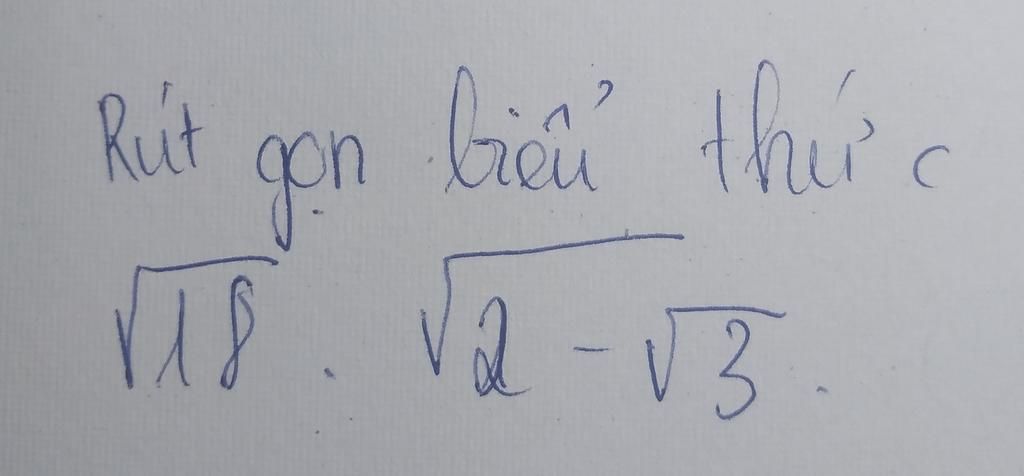 Rút gọn biểu thức
√18 . √(2 - √3) .